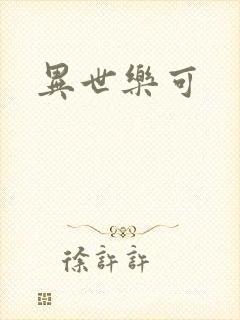 異世樂可
徐許許